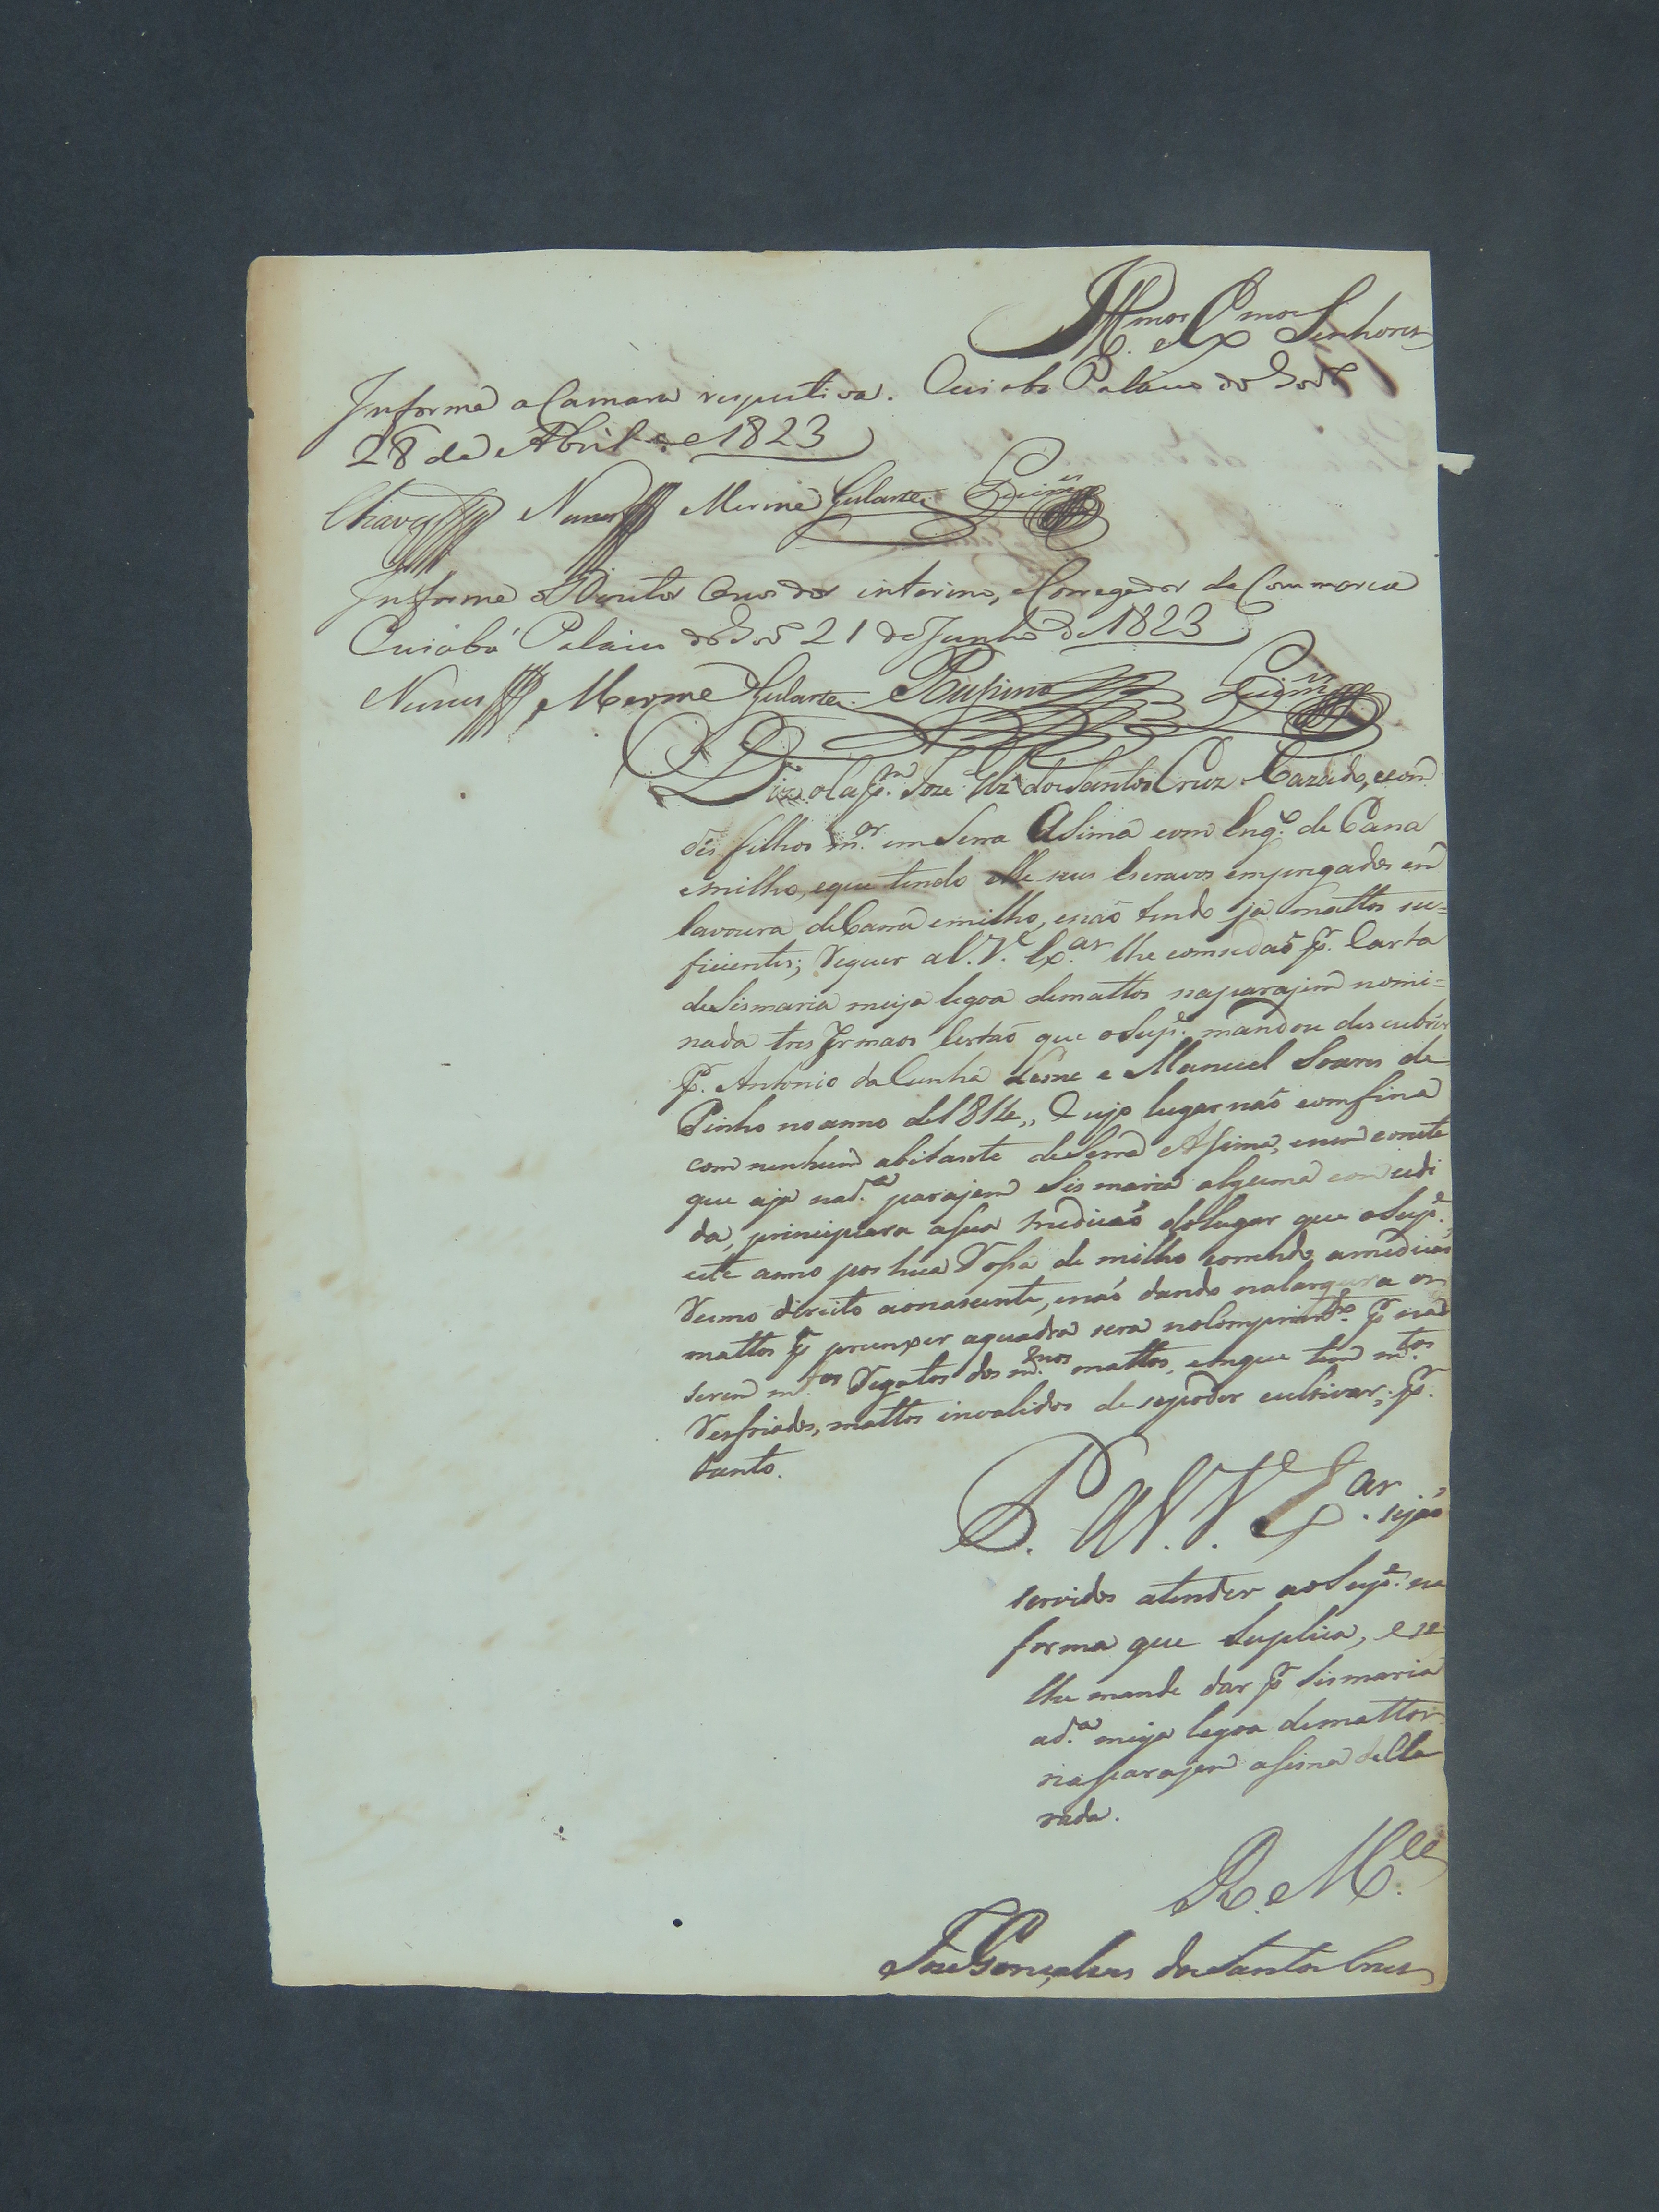 Ill.mos e Ex.mos Senhores
Informe a Camara respectiva. Cuiabá Palacio do Gov.o
28 de Abril de 1823
Chaves Nunes Merme Gularte Guim.es
Informe o Doutor Ouvidor interino, e Corregedor da Commarca
Cuiabá Palacio do Gov.o 21 de Junho de 1823
Nunes Merme Gularte Rufino Guim.es
Diz o Cap.m Joze Glz' dos Santos Cruz Cazado, e com
filhos m.or em Serra Asima com Eng.o de Cana
e milho, e que tendo elle seus Escravos empregados em
lavoura de Canna e milho, e não tendo ja mattos su=
ficientes; Requer a V. V. Ex.as lhe consedaõ p.r Carta
de Sismaria meija legoa de mattos na parajem nomi=
nada tres Irmaos Certaõ que o Sup.e mandou descubrir
p.r Antonio da Cunha Leme e Manuel Soares de
Pinho no anno de 1814,, Cujo lugar naõ comfina
com nenhum abitante de Serra Asima, e nem conste
que aja na d.a parajem Sismaria alguma consedi
da, principiara a sua mediçaõ do lugar que o Sup.e
este anno pos hua Rossa de milho correndo a mediçaõ
Rumo direito ao nascente, e naõ dando na largura os
mattos p.a prenxer a quadra sera no Comprim.to p.r
serem m.tos Regatos dos m.mos mattos, em que tem m.tos
Resfriados, mattos invalidos de se poder cultivar; p.r
tanto.
P. a V. V. Ex.as sejaõ
servidos atender ao Sup.e na
forma que Suplica, e se
lhe mande dar p.r Sismaria
a d.a meija legoa de mattos
na parajem asima decla
rada.
E. R. M.ce
Joze Gonçalves dos Santos Cruz